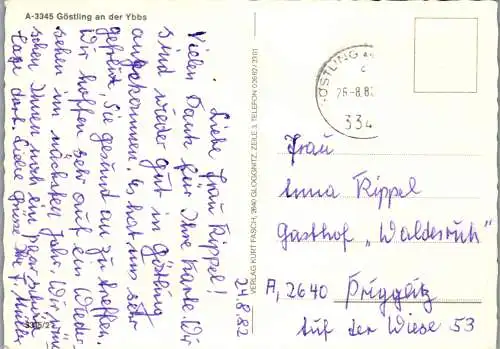 A-3345 Göstling an der Ybbs
Liebe Frau Rippel!
Vielen Dank für Ihre Karte. Wir
sind wieder gut in Göstling
angekommen. Es hat uns sehr
gefreut, Sie gesund an zu treffen.
Wir hoffen sehr auf ein Wieder-
sehen im nächsten Jahr. Wir wün
schen Ihnen noch ein paar schöne
Tage dort. Liebe Grüsse Ihre F.
24.8.82
3345/22
VERLAG KURT FASCH, 2640 GLOGGNITZ, ZEILE 3, TELEFON 02662/3101
ÖSTLING
26.-8.82
334
Frau
Anna Rippel
Gasthof „Waldesruh"
A, 2640 Priggliz
Auf der Wiese 53